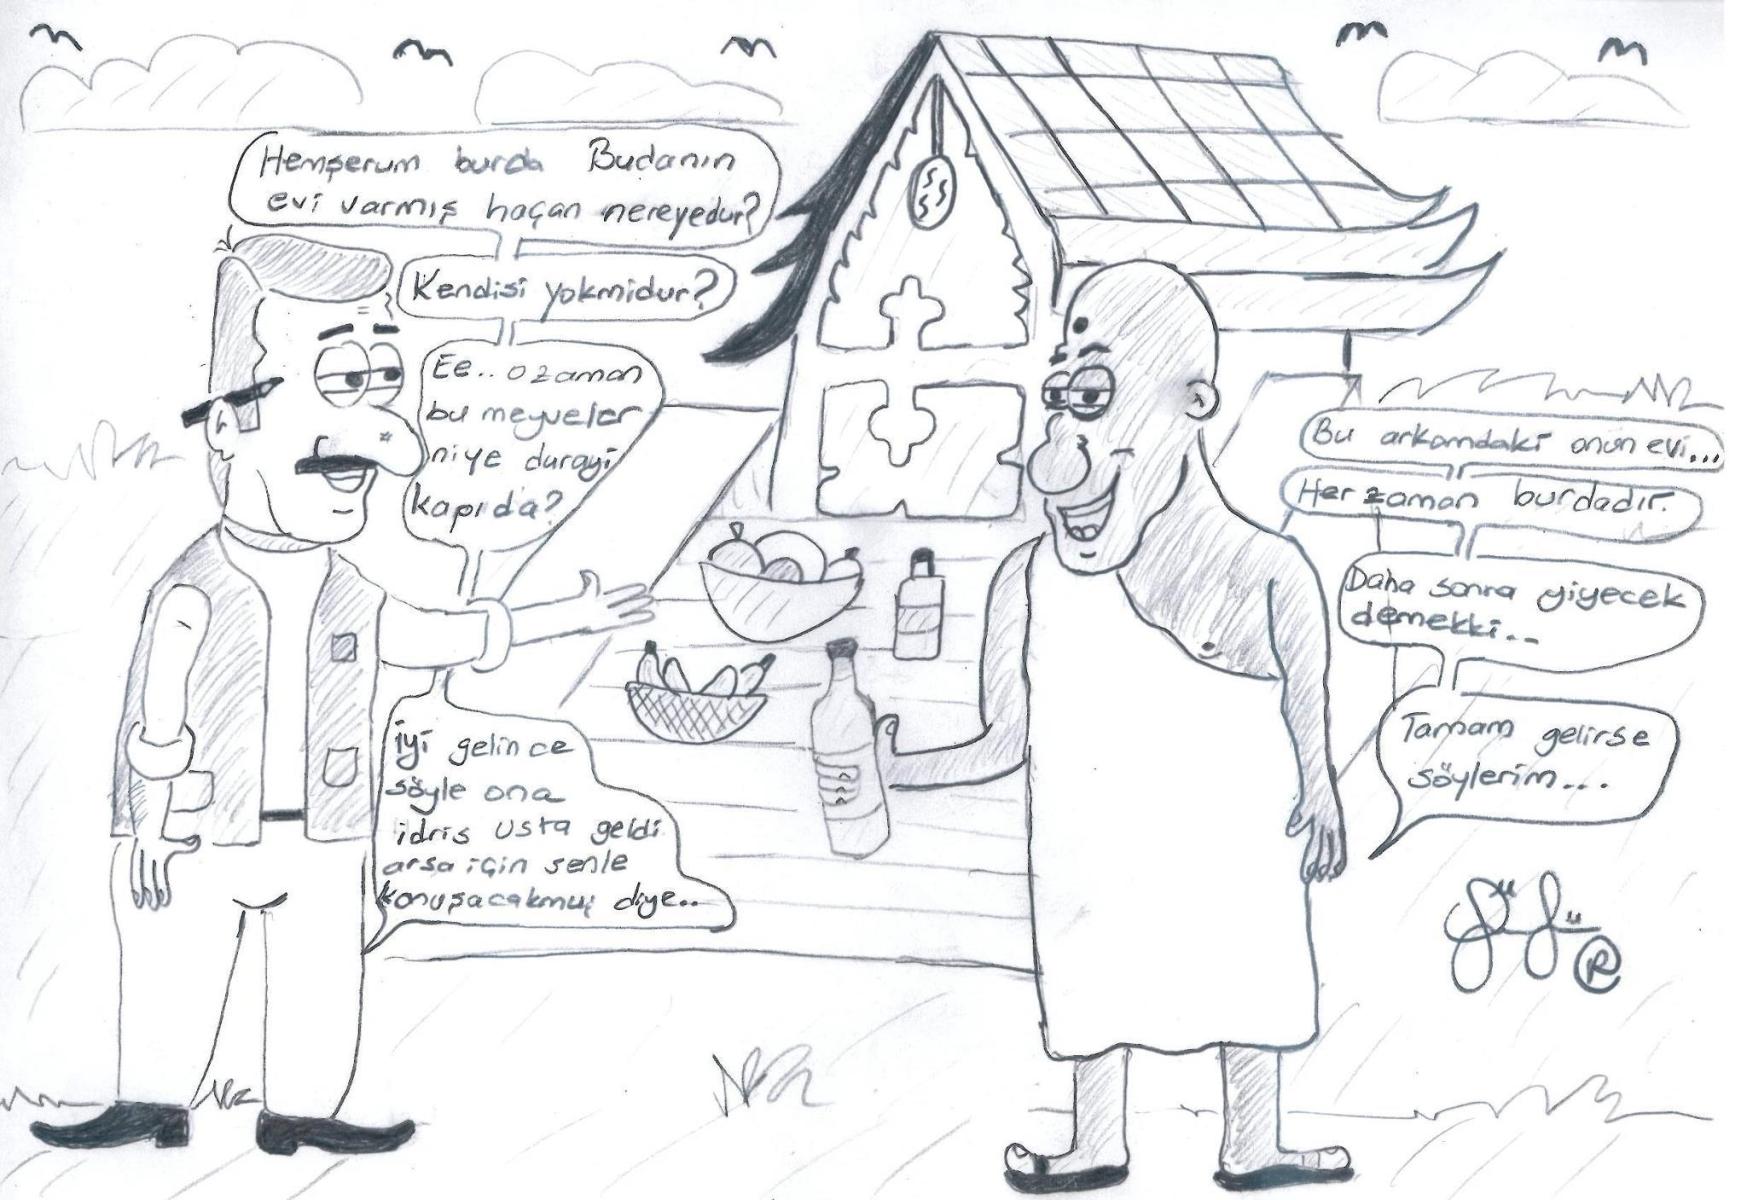 Hemşerum burda Budanın
evi varmış haçan nereyedur?
Bu arkamdaki onun evi...
Kendisi yokmidur?
Her zaman burdadır.
Ee.. ozaman
bu meyveler
niye durayi
kapıda?
Daha sonra yiyecek
demekki..
iyi gelince
söyle ona
idris usta geldi
arsa için senle
konuşacakmuş diye..
Tamam gelirse
söylerim...